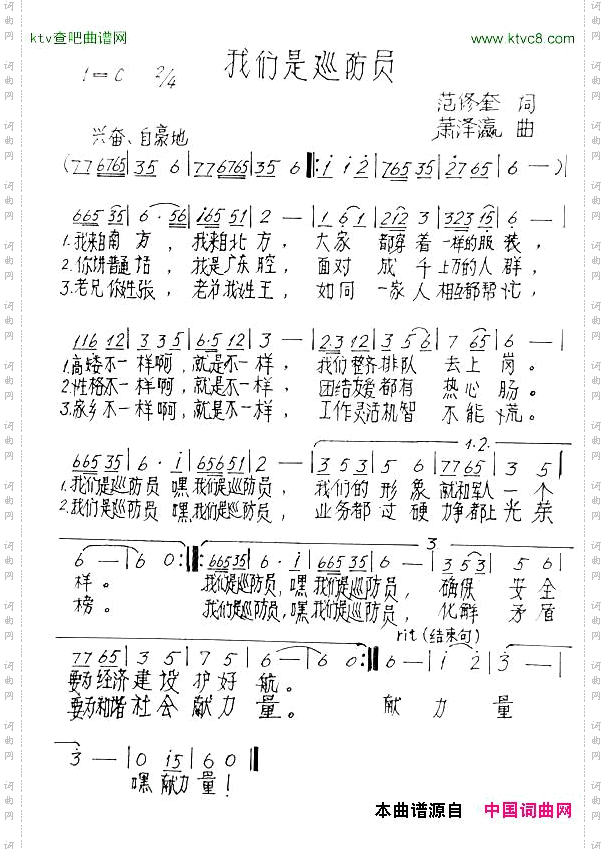 ktv查吧曲谱网
www.ktvc8.com
我们是巡防员
1=C 2/4
范修奎 词
萧泽瀛 曲
兴奋、自豪地
(77 6765 | 35 6 | 77 6765 | 35 6 |: i i 2 | 765 35 | 2765 | 6 — )|
665 35 | 6 · 56 | i65 51 | 2 — | 1 6 1 | 212 3 | 323 15 | 6 — |
1.我来自南方，我来自北方，大家都穿着一样的服装，
2.你讲普通话，我是广东腔，面对成千上万的人群，
3.老兄你姓张，老弟我姓王，如同一家人相互都帮忙，
116 12 | 3 3 5 | 6·5 12 | 3 — | 2·3 12 | 3 5 6 | 7 65 | 6 — |
1.高矮不一样啊，就是不一样，我们整齐排队去上岗。
2.性格不一样啊，就是不一样，团结友爱都有热心肠。
3.家乡不一样啊，就是不一样，工作灵活机智不能慌。
1.2.
665 35 | 6 · i | 656 51 | 2 — | 3 5 3 | 5 6 | 77 65 | 3 5 |
1.我们是巡防员嘿我们是巡防员，我们的形象就和军人一个
2.我们是巡防员嘿我们是巡防员，业务都过硬力争都上光荣
3
6 — | 6 0 :|: 665 35 | 6 · i | 665 35 | 6 — | 3 5 3 | 5 6 |
样。我们是巡防员，嘿我们是巡防员，确保安全
榜。我们是巡防员，嘿我们是巡防员，化解矛盾
rit(结束句)
77 65 | 3 5 | 7 5 | 6 — | 6 0 :| 6 — | i 2 | 3 — |
要为经济建设护好航。
要为和谐社会献力量。献力量
3 — | 0 i5 | 6 0 ‖
嘿献力量！
本曲谱源自 中国词曲网